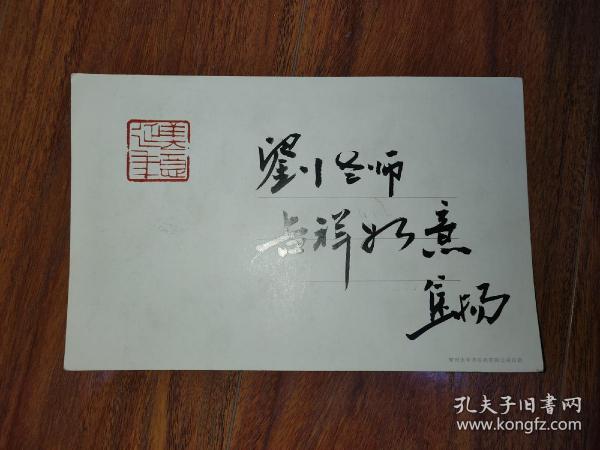 美意
延年
劉老师
吉祥如意
孔夫子旧书网
www.kongfz.com